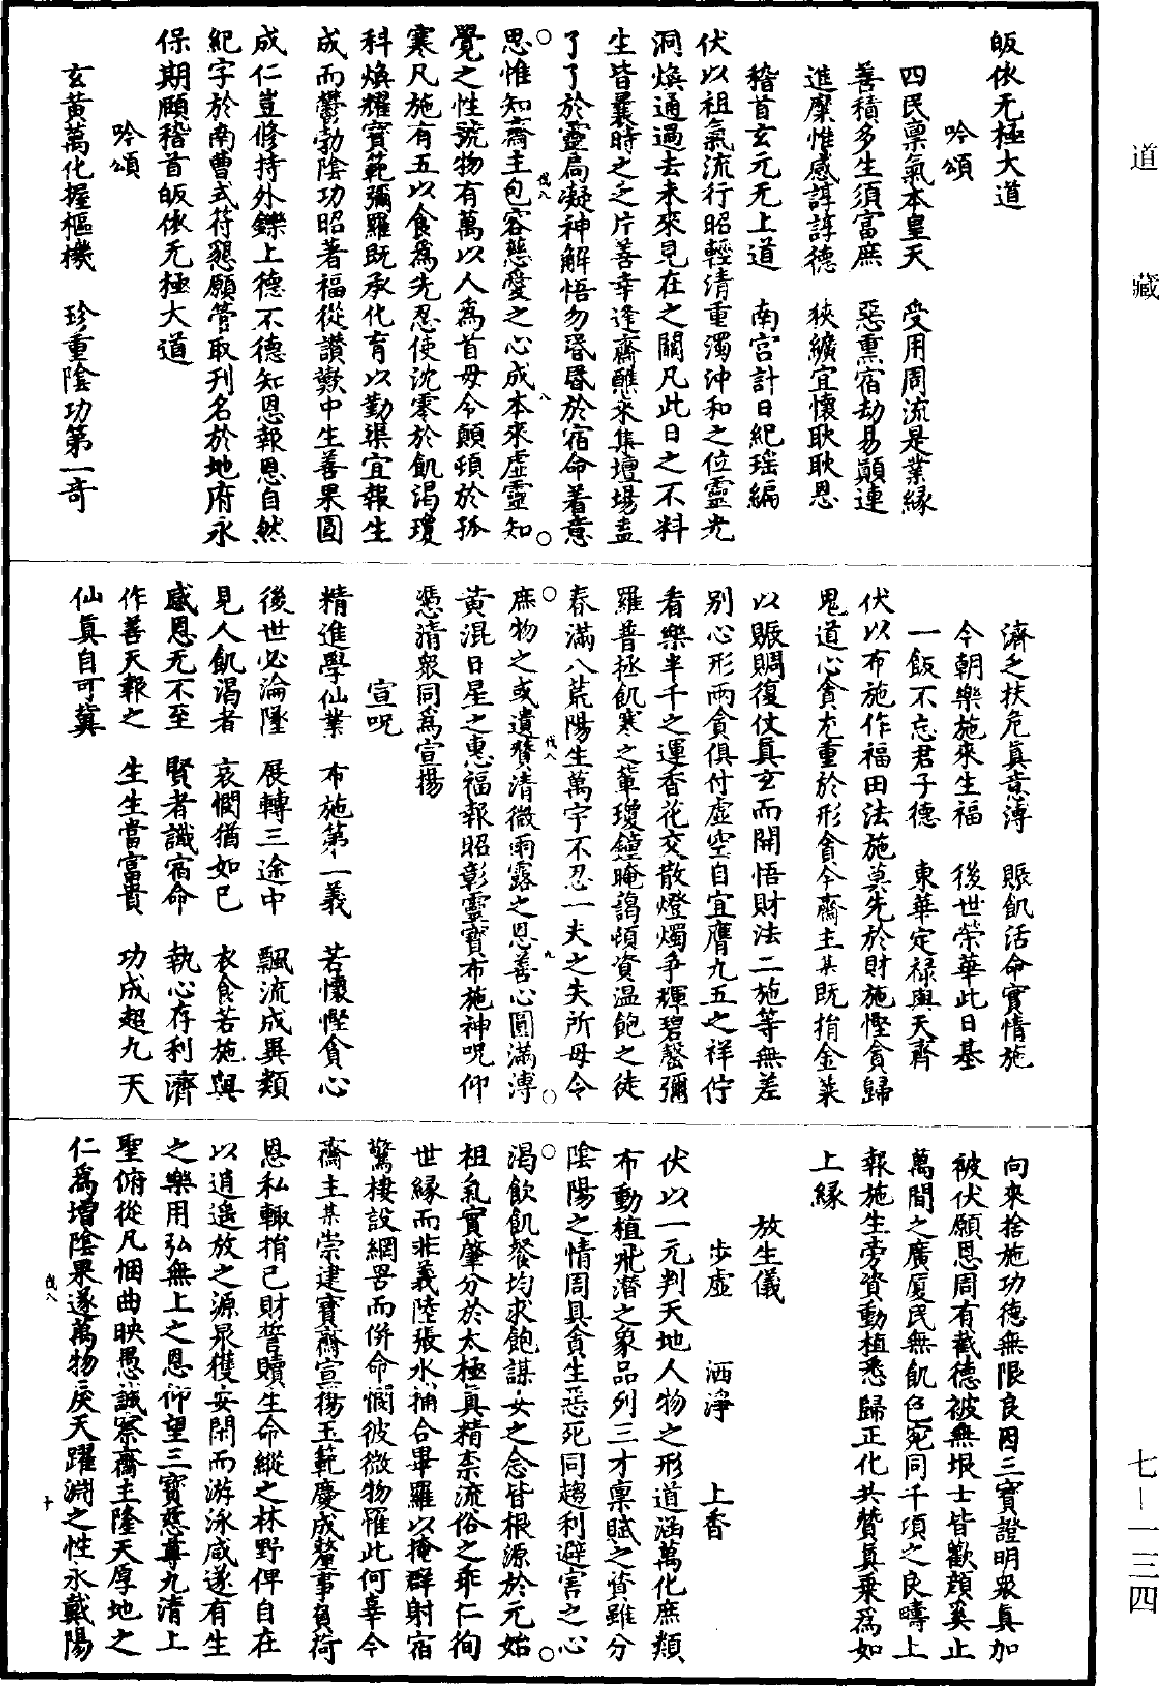 道藏
七—一三四
皈依无極大道
吟頌
四民禀氣本皇天　受用周流是業緣
善積多生須富庶　惡熏宿劫易顛連
進糜惟感諄諄德　狹纊宜懷耿耿恩
稽首玄元无上道　南宫計日紀瑶編
伏以祖氣流行昭輕清重濁沖和之位靈光
洞煥通過去未來見在之關凡此日之不料
生皆曩時之乏片善幸逢齋醮來集壇場盍
了了於靈扃凝神解悟勿昏昏於宿命着意
思惟知齋主包容慈愛之心成本來虛靈知
覺之性號物有萬以人爲首毋令顛頓於孤
寒凡施有五以食爲先忍使沈零於飢渴瓊
科煥耀寳範彌羅既承化育以勤渠宜報生
成而鬱勃陰功昭著福從讚歎中生善果圓
成仁豈修持外鑠上德不德知恩報恩自然
紀字於南曹式符懇願管取刋名於地府永
保期頤稽首皈依无極大道
吟頌
玄黄萬化握樞機　珍重陰功第一奇
濟乏扶危真意溥　賑飢活命實情施
今朝樂施來生福　後世榮華此日基
一飯不忘君子德　東華定禄與天齊
伏以布施作福田法施莫先於財施慳貪歸
鬼道心貪尤重於形貪今齋主某既捐金粟
以賑賙復仗真玄而開悟財法二施等無差
别心形兩貪俱付虛空自宜膺九五之祥佇
看樂半千之運香花交散燈燭爭輝碧磬彌
羅普拯飢寒之輩瓊鐘晻藹頓資温飽之徒
春滿八荒陽生萬宇不忍一夫之失所毋令
庶物之或遺贊清微雨露之恩善心圓滿溥
黄混日星之惠福報昭彰靈寳布施神呪仰
憑清衆同爲宣揚
宣呪
精進學仙業　布施第一義　若懷慳貪心
後世必淪墜　展轉三途中　飄流成異類
見人飢渴者　哀憫猶如己　衣食若施與
感恩无不至　賢者識宿命　執心存利濟
作善天報之　生生當富貴　功成超九天
仙真自可冀
向來捨施功德無限良因三寳證明衆真加
被伏願恩周有截德被無垠士皆歡顔奚止
萬間之廣厦民無飢色宛同千項之良疇上
報施生旁資動植悉歸正化共贊真乘爲如
上緣
放生儀
步虛　洒淨　上香
伏以一元判天地人物之形道涵萬化庶類
布動植飛潛之象品列三才禀賦之資雖分
陰陽之情周具貪生惡死同趨利避害之心
渴飲飢餐均求飽謀安之念皆根源於元始
祖氣實肇分於太極真精柰流俗之乖仁徇
世緣而非義陸張水捕合畢羅以掩群射宿
驚棲設網罟而併命憫彼微物罹此何辜今
齋主某崇建寳齋宣揚玉範慶成釐事負荷
恩私輙捐己財誓贖生命縱之林野俾自在
以逍遥放之源泉獲安閑而游泳咸遂有生
之樂用弘無上之恩仰望三寳慈尊九清上
聖俯從凡悃曲映愚誠察齋主隆天厚地之
仁爲增陰果遂萬物戾天躍淵之性永戴陽